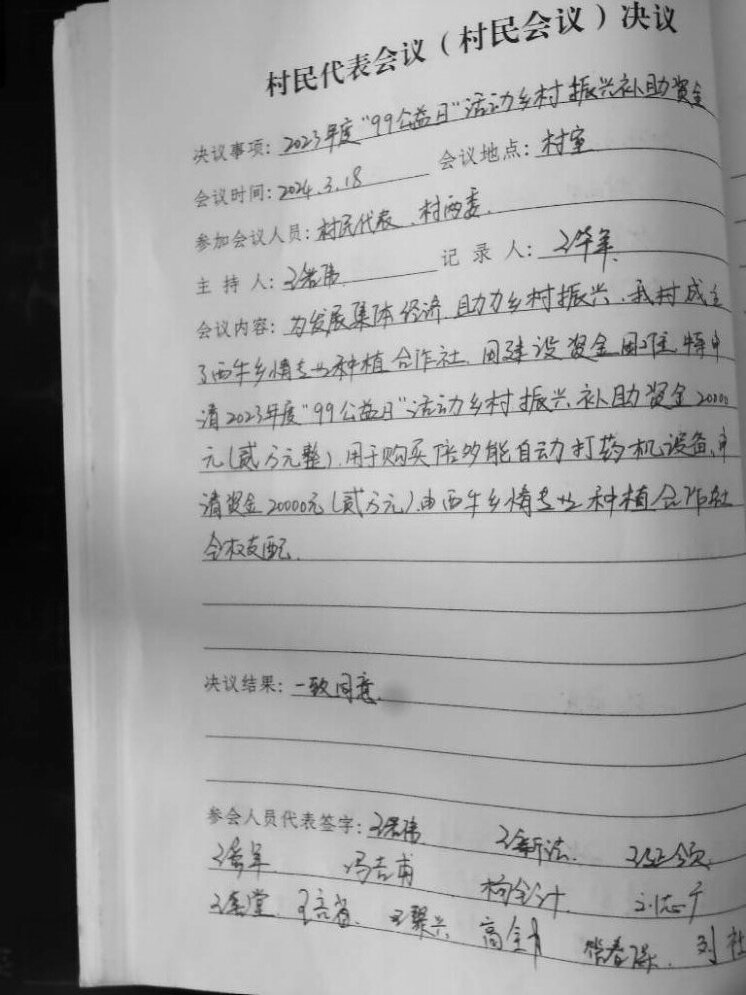 村民代表会议（村民会议）决议
决议事项：2023年度“99公益日”活动乡村振兴补助资金
会议时间：2024.3.18 会议地点：村室
参加会议人员：村民代表、村两委.
主持人：王 伟. 记录人：王华
会议内容：为发展集体经济，助力乡村振兴，我村成立
了西牛乡情专业种植合作社，因建设资金困难，特申
请2023年度“99公益日”活动乡村振兴补助资金20000
元（贰万元整），用于购买 多能自动打药机设备，申
请资金20000元（贰万元），由西牛乡情专业种植合作社
全权支配.
决议结果：一致同意.
参会人员代表签字：王 伟 王新法.
冯吉甫
高全
刘